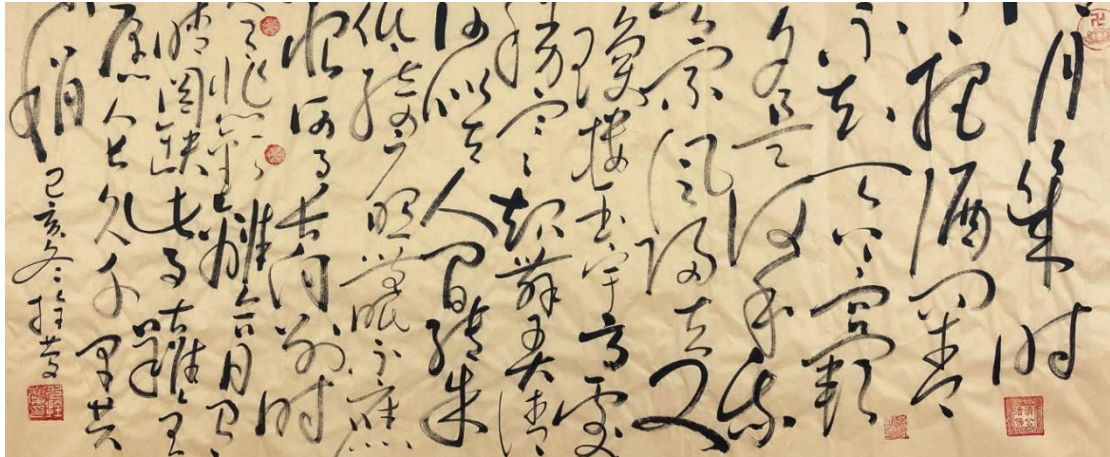 月幾时
把酒问青
不知天上宫阙
夕是何年我
乘风归去又
琼楼玉宇高处
胜寒起舞弄清
何似在人间转朱
低绮户照无眠不应
恨何事长向别时
人有悲欢离合月有
晴圆缺此事古难全
愿人长久千里共
娟
己亥冬